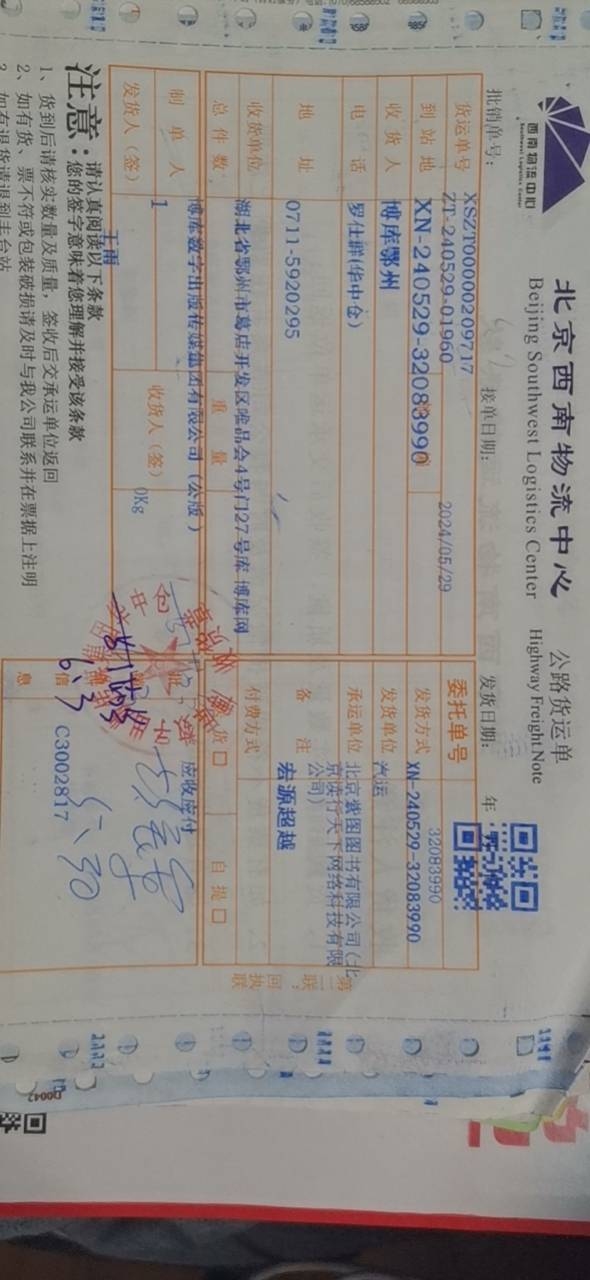 西南物流中心
Southwest Logistics Center
北京西南物流中心 公路货运单
Beijing Southwest Logistics Center Highway Freight Note
批销单号：
接单日期：
发货日期： 年
XSZT00000209717
货运单号 ZT-240529-01960 2024/05/29
委托单号 32083990
到站地 XN-240529-32083990
发货方式 XN-240529-32083990
收货人 博库鄂州
发货单位 汽运
电话 罗仕群(华中仓)
承运单位 北京紫图图书有限公司(北
京读行天下网络科技有限
公司)
地址 0711-5920295
备注 宏源超越
收货单位 湖北省鄂州市葛店开发区唯品会4号门27号库 博库网
付费方式
总件数 重量
货 自提
制单人 博库数字出版传媒集团有限公司(公版)
应收应付
1 0Kg
发货人（签） 王雨
收货人（签）
信
息
C3002817
第二联：回执联
注意： 请认真阅读以下条款
您的签字意味着您理解并接受该条款
1、货到后请核实数量及质量，签收后交承运单位返回
2、如有货、票不符或包装破损请及时与我公司联系并在票据上注明
3、如有退货请退到丰台站